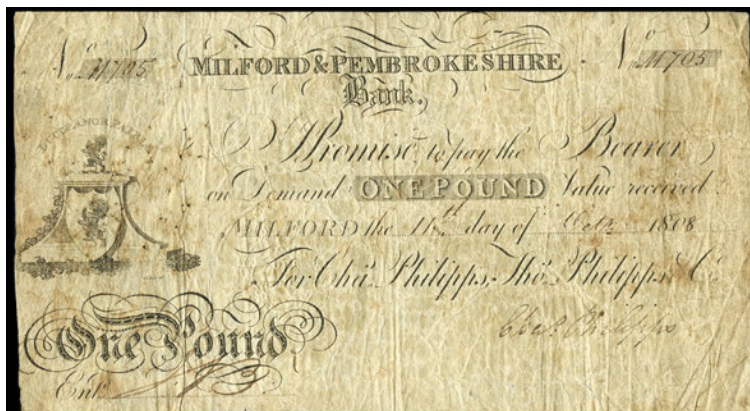 No M705 No M705
MILFORD & PEMBROKESHIRE
Bank,
DUCIT AMOR PATRIÆ
I Promise to pay the Bearer
on Demand ONE POUND Value received
MILFORD the 11th day of Octr 1808
For Chas. Philipps, Thos. Philipps & Co
Chas Philipps
One Pound
Entd